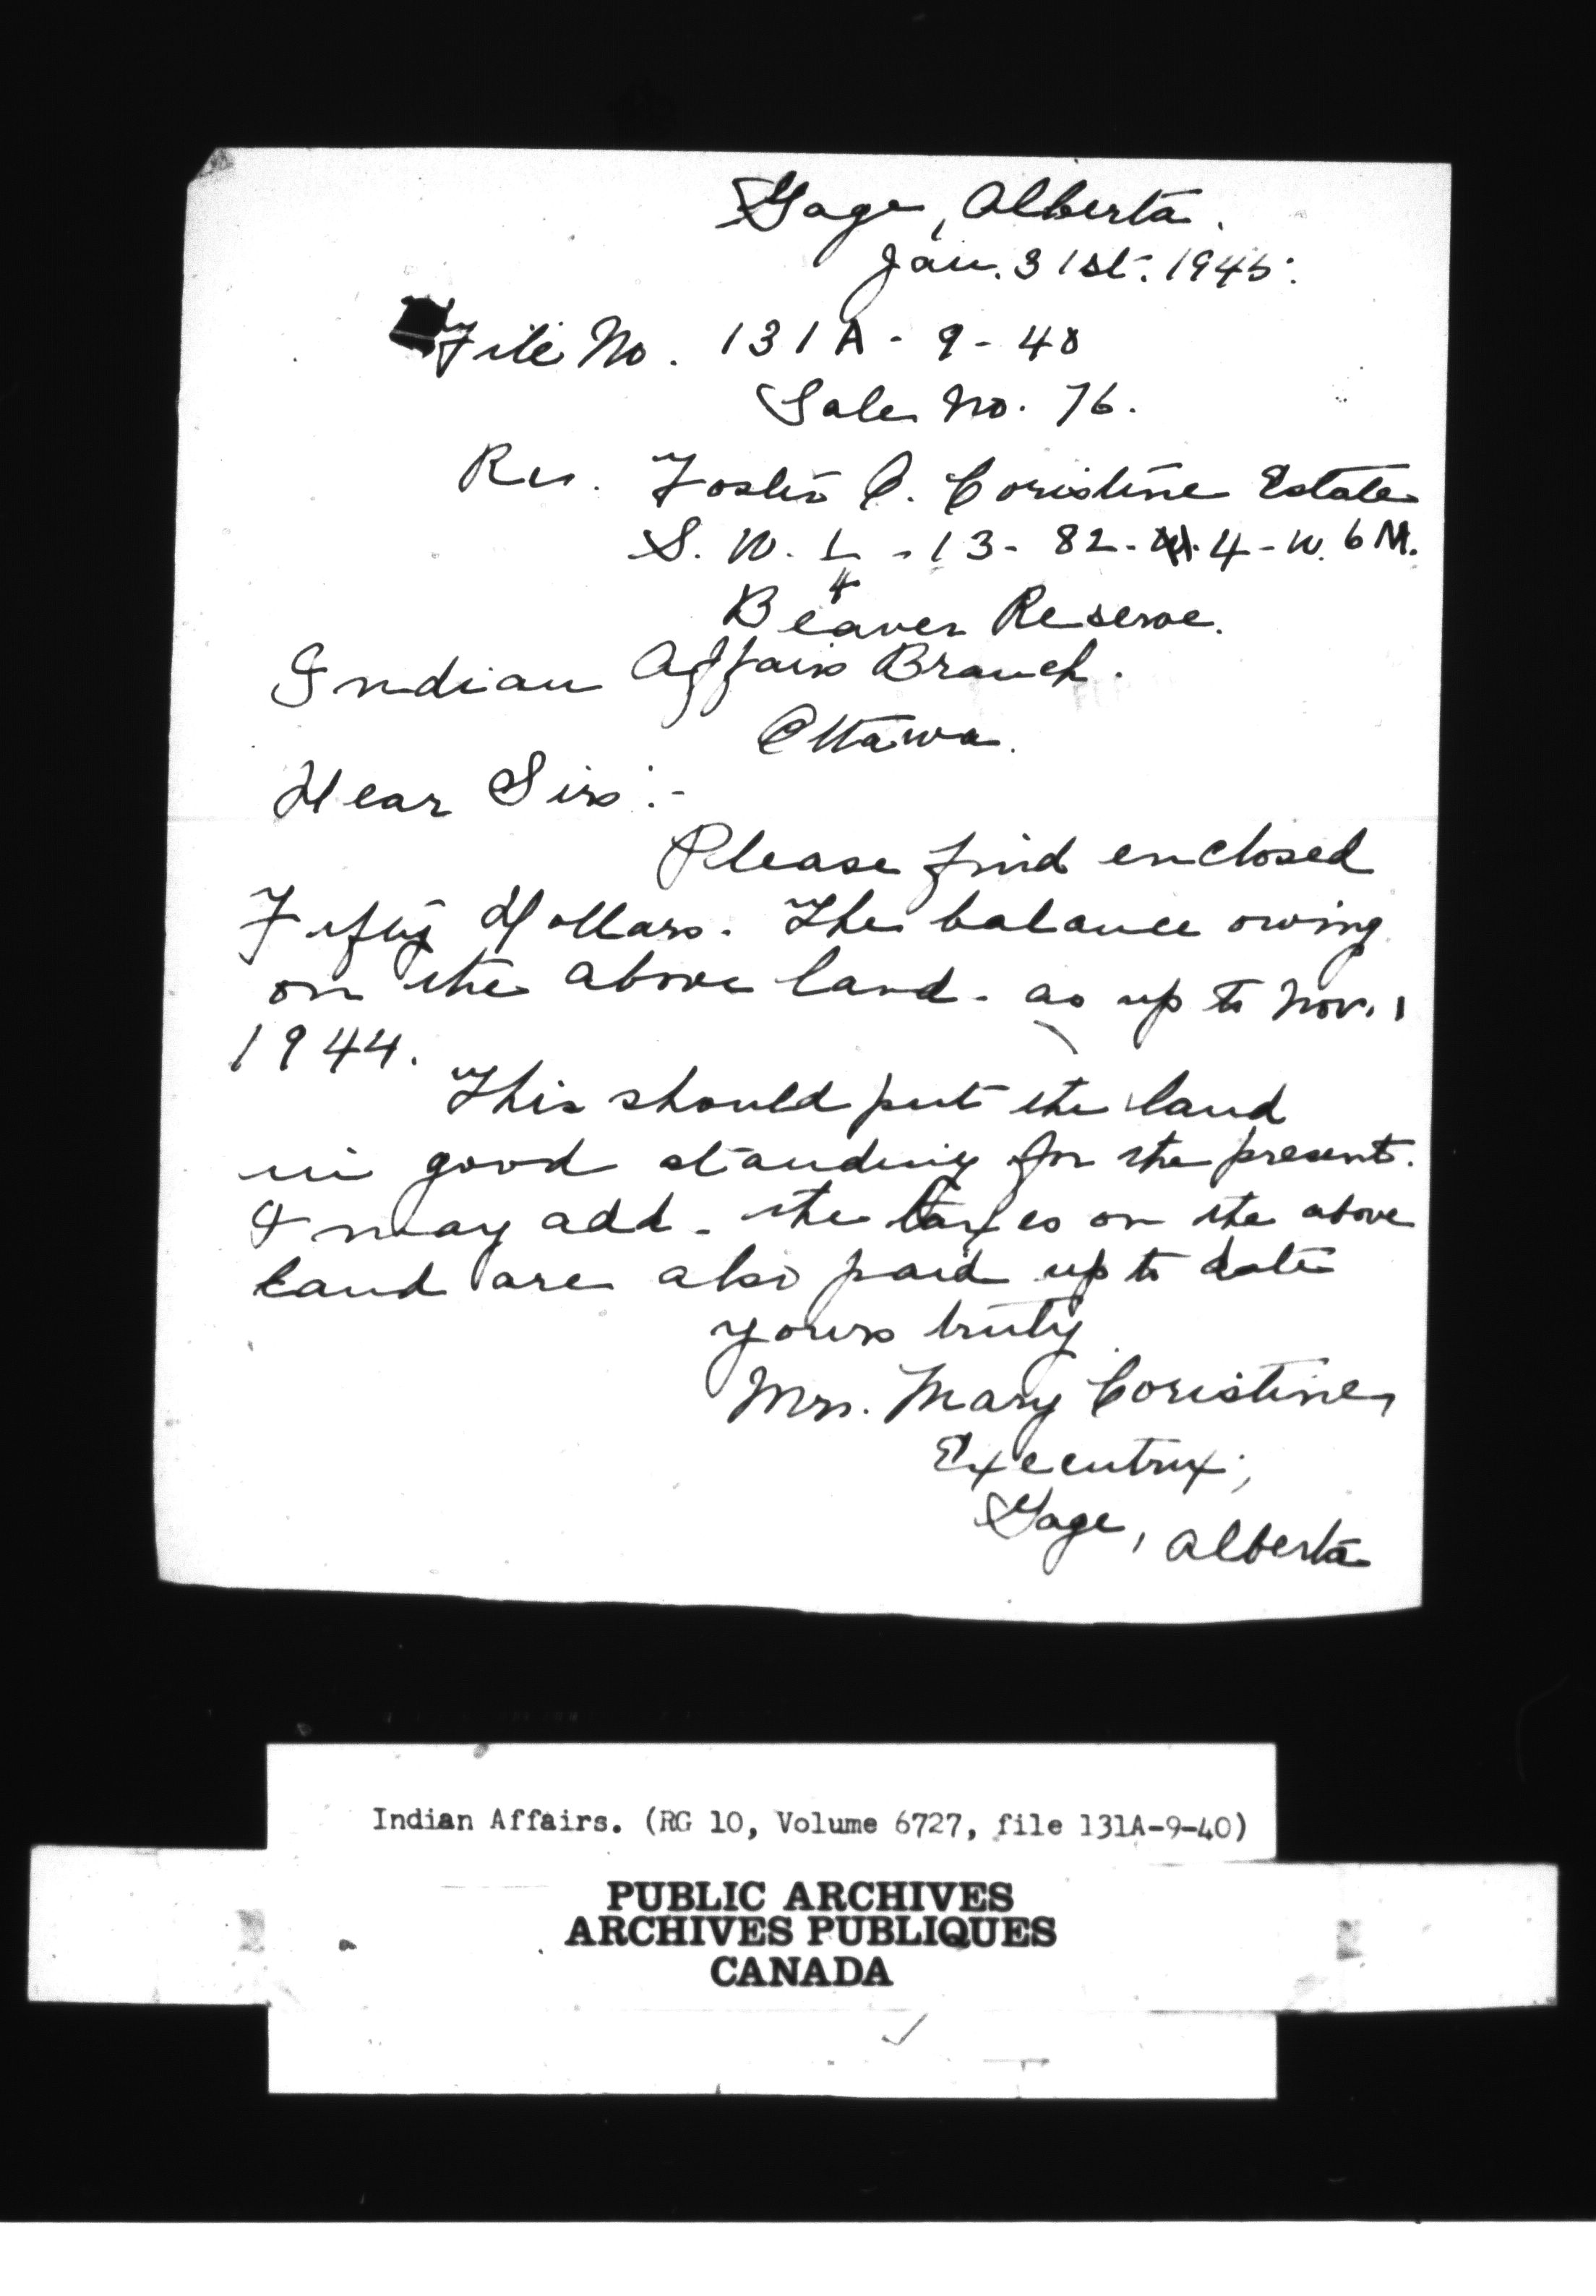 Gage, Alberta.
Jan. 31st. 1945.
File No. 131A - 9 - 40
Sale No. 76.
Re. Foster C. Coristine Estate
S. W. 1/4 - 13 - 82 - 4 - W. 6 M.
Beaver Reserve.
Indian Affairs Branch.
Ottawa.
Dear Sirs :-
Please find enclosed
Fifty Dollars. The balance owing
on the above land - as up to Nov. 1
1944.
This should put the land
in good standing for the present.
I may add - the taxes on the above
land are also paid up to date
Yours truly
Mrs. Mary Coristine,
Executrix;
Gage, Alberta
Indian Affairs. (RG 10, Volume 6727, file 131A-9-40)
PUBLIC ARCHIVES
ARCHIVES PUBLIQUES
CANADA